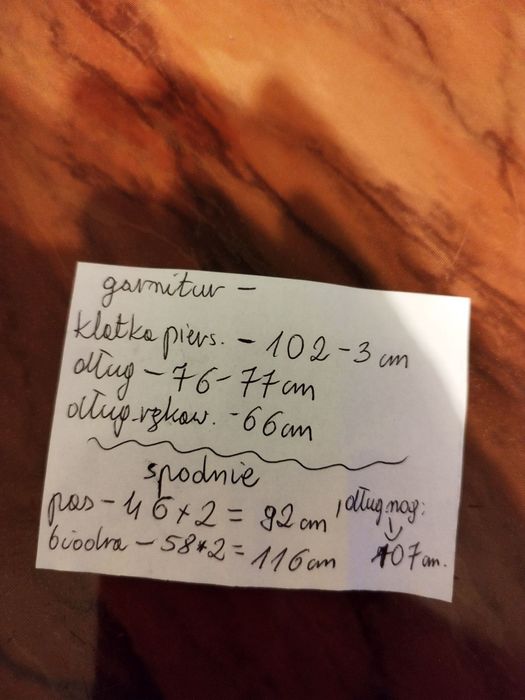 garnitur -
klatka piers. - 102-3 cm
dług - 76-77cm
dług.rękaw. - 66cm
spodnie
pas - 46 x 2 = 92 cm, dług nog:
biodra - 58*2 = 116 cm 107 cm.